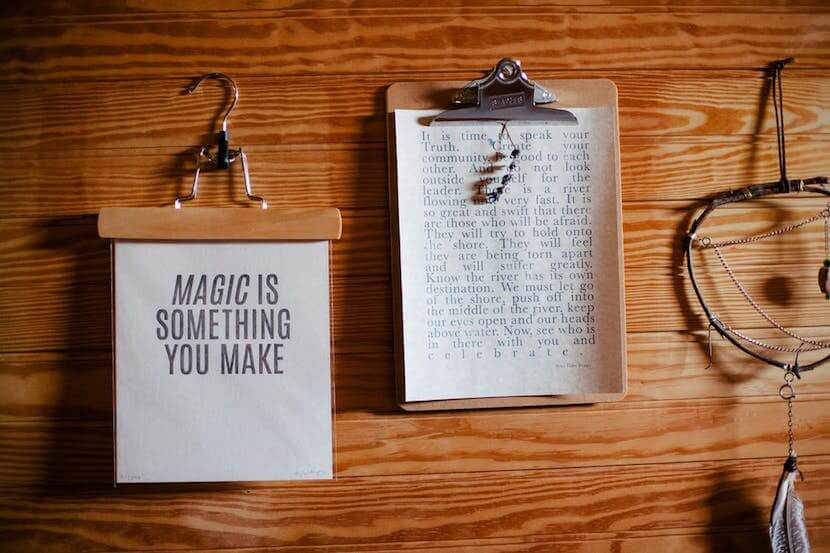 MAGIC IS
SOMETHING
YOU MAKE
It is time to speak your
Truth. Create your
community, be good to each
other. And do not look
outside yourself for the
leader. There is a river
flowing now very fast. It is
so great and swift that there
are those who will be afraid.
They will try to hold onto
the shore. They will feel
they are being torn apart
and will suffer greatly.
Know the river has its own
destination. We must let go
of the shore, push off into
the middle of the river, keep
our eyes open and our heads
above water. Now, see who is
in there with you and
celebrate.